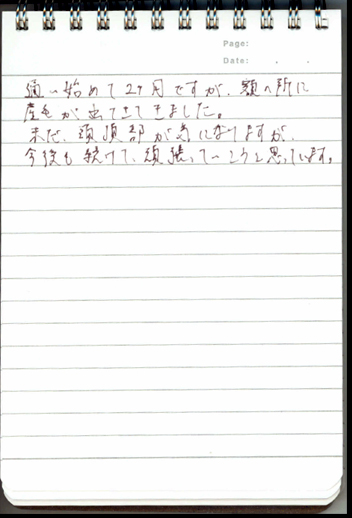 Page:
Date: . .
通い始めて2ケ月ですが、額の所に
産毛が出てきてきました。
未だ、頭頂部が気になりますが、
今後も続けて、頑張っていこうと思っています。